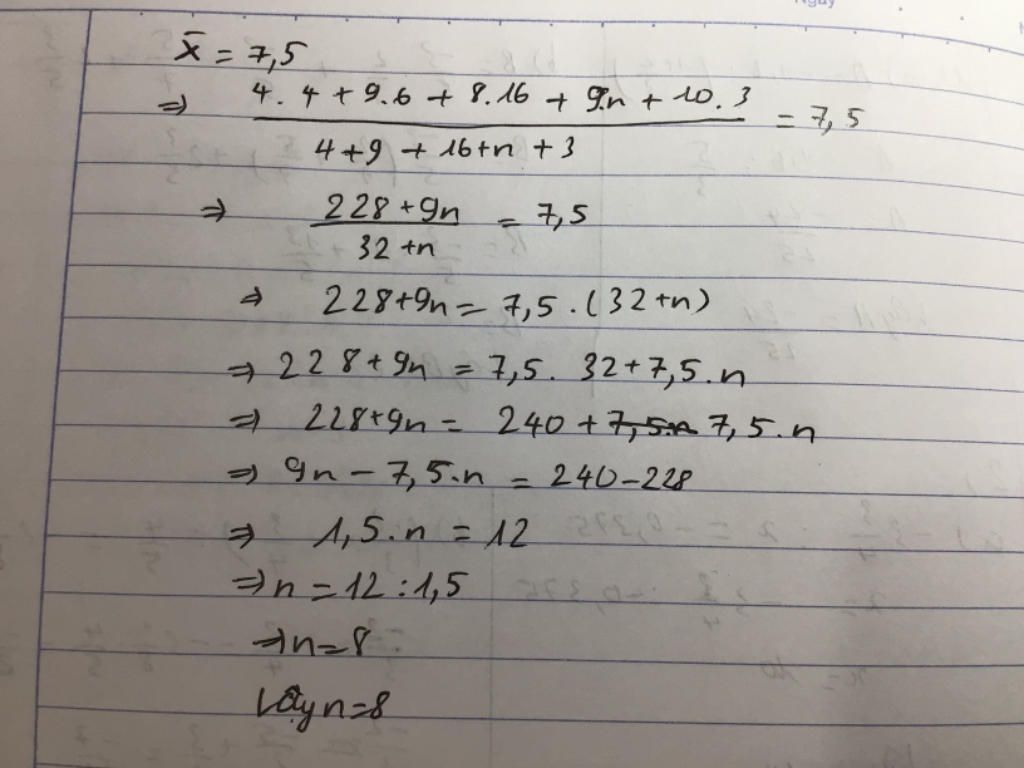 x̄ = 7,5
=> (4. 4 + 9.6 + 8.16 + 9.n + 10. 3)/(4 + 9 + 16 + n + 3) = 7,5
=> (228 + 9n)/(32 + n) = 7,5
=> 228 + 9n = 7,5 . (32 + n)
=> 228 + 9n = 7,5. 32 + 7,5. n
=> 228 + 9n = 240 + 7,5.n 7,5. n
=> 9n - 7,5.n = 240 - 228
=> 1,5. n = 12
=> n = 12 : 1,5
=> n = 8
Vậy n = 8